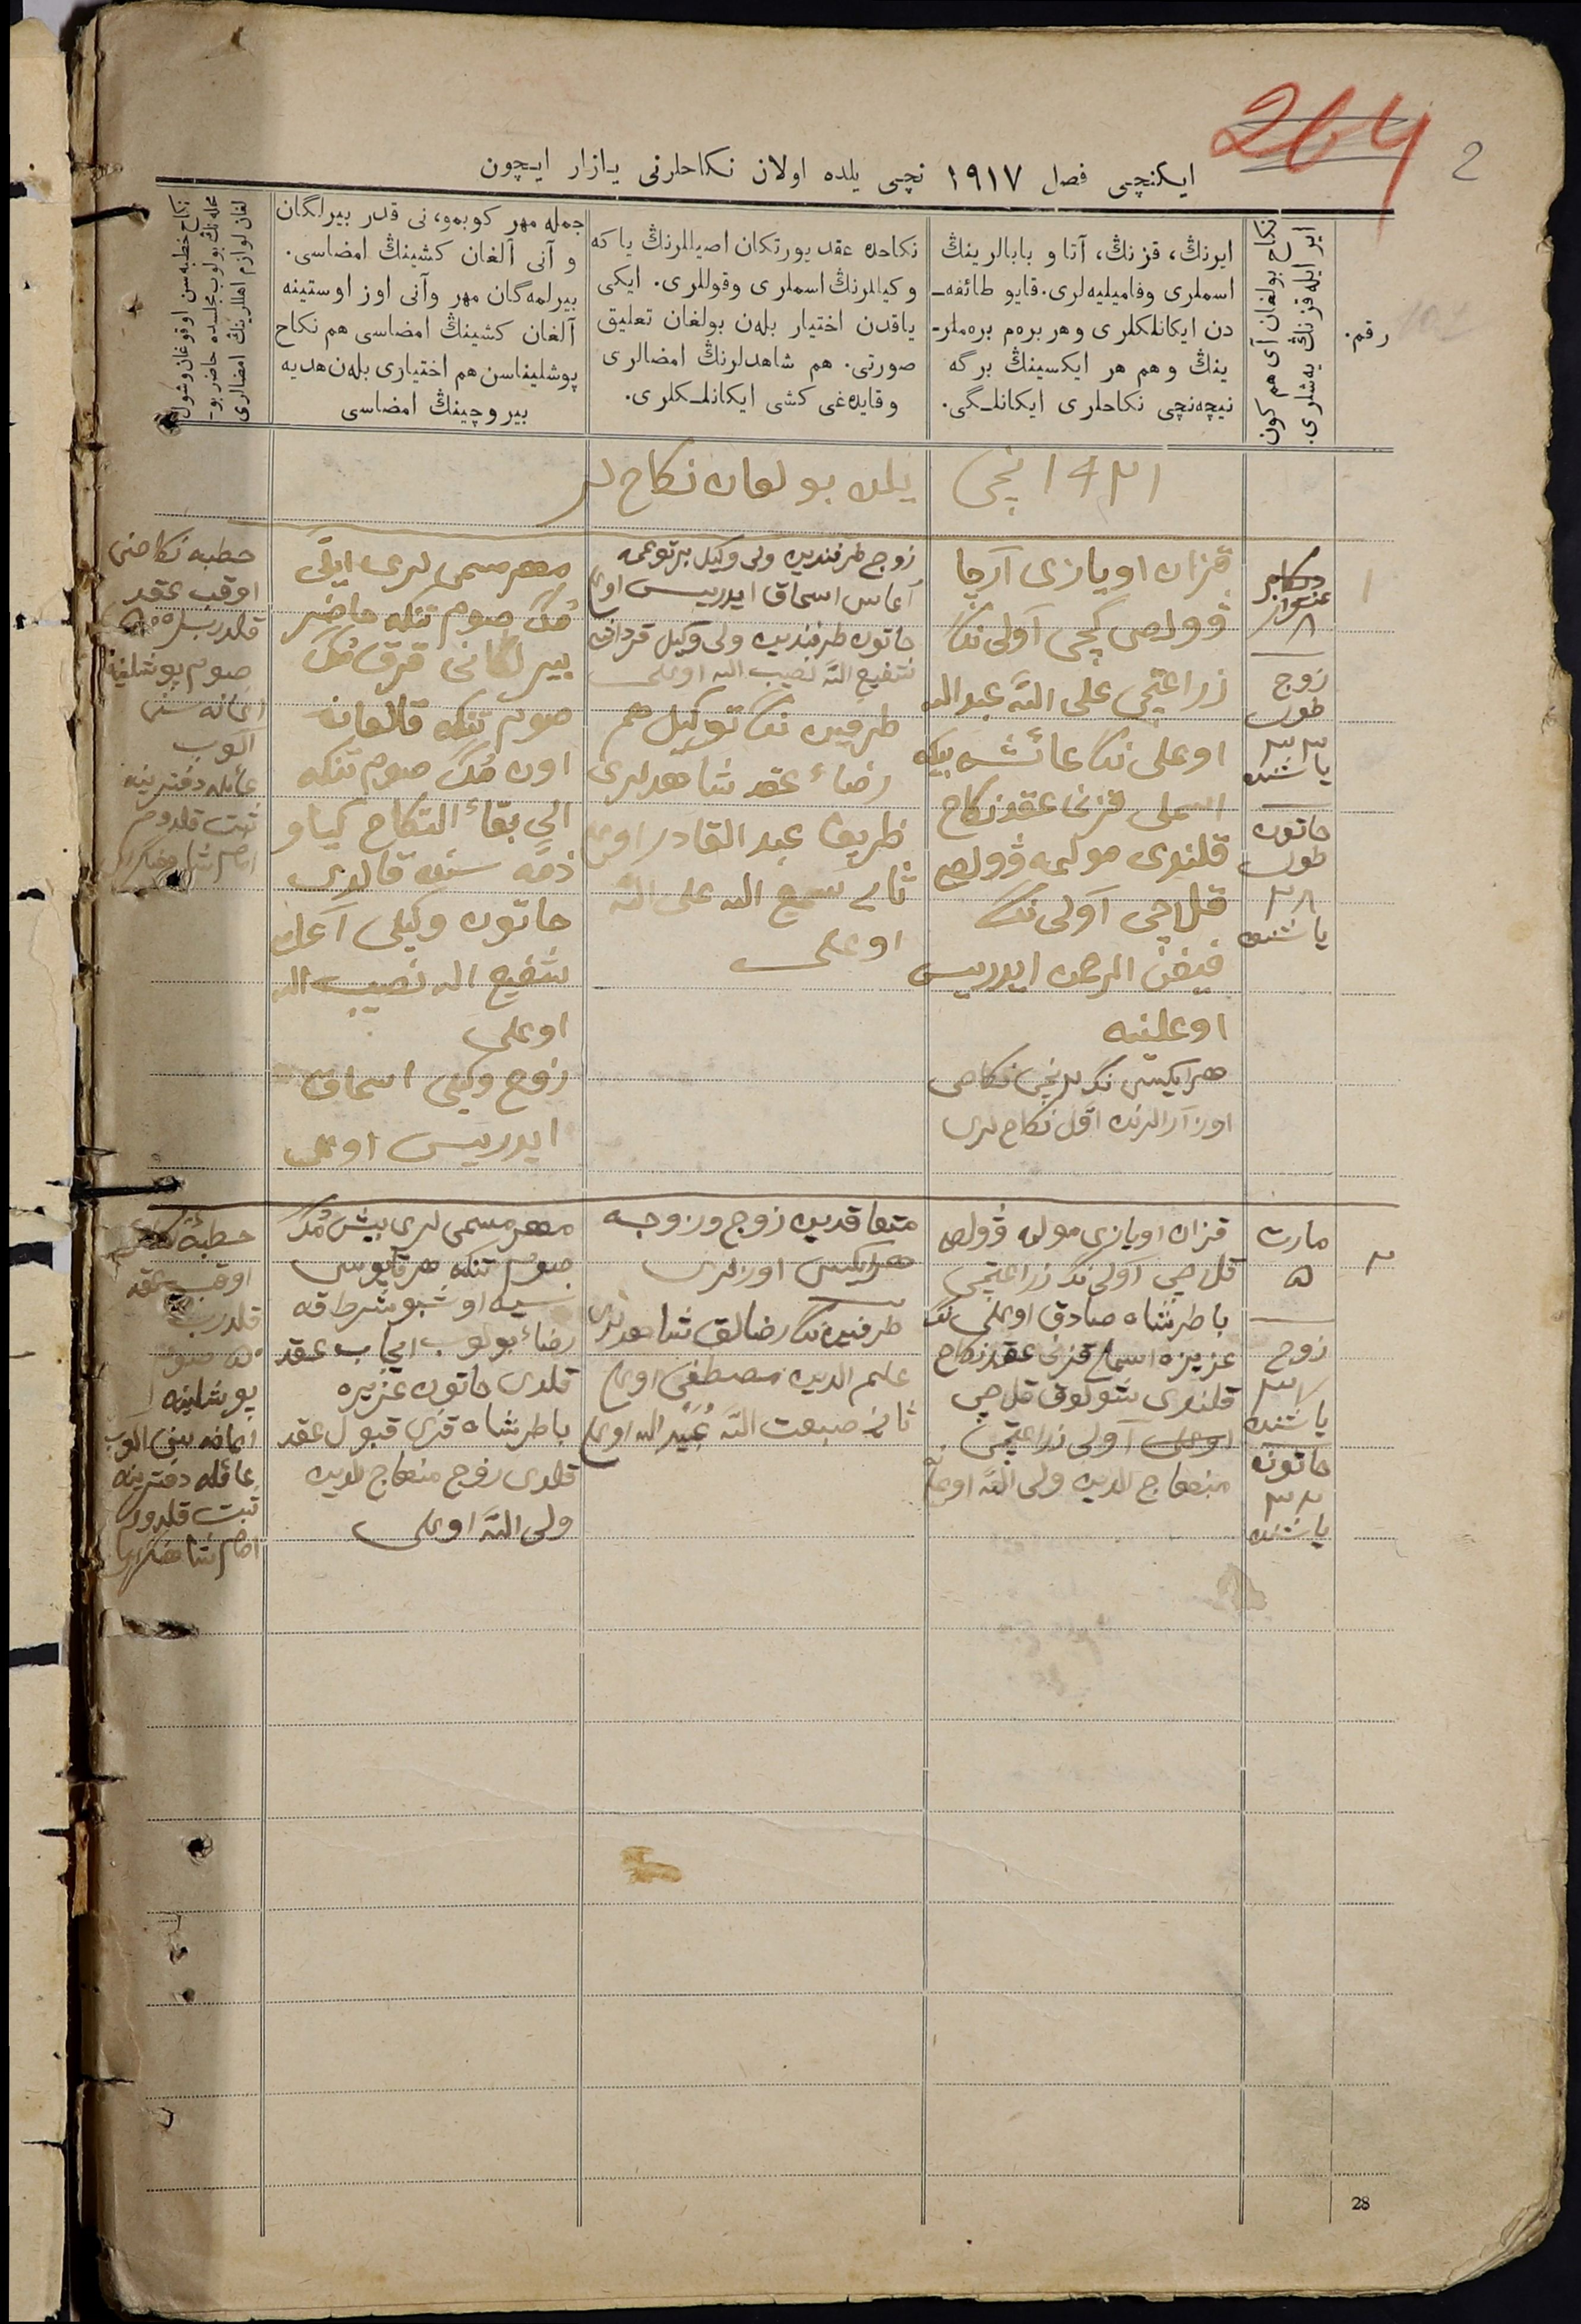 264
2
ایكنچی فصل ١٩١٧ نچی یلده اولان نكاحلرنی یازار ایچون
رقم.
نكاح بولغان آی هم كون
ایر ایله قزنڭ یه‌شلری.
ایرنڭ، قزنڭ، آتا و بابالرینڭ
اسملری وفامیلیه‌لری. قایو طائفه‌ـ
دن ایكانلكلری و هر بره‌م بره‌ملرـ
ینڭ و هم هر ایكسینڭ برگه
نیچه‌نچی نكاحلری ایكانلـگی.
نكاحده عقد یورتكان اصیللرنڭ یا كه
و كیللرنڭ اسملری وقوللری. ایكی
یاقدن اختیار بله‌ن بولغان تعلیق
صورتی. هم شاهدلرنڭ امضالری
و قایده‌غی كشی ایكانلـكلری.
جمله مهر كوبمو، نی قدر بیرلگان
و آنی آلغان كشینڭ امضاسی.
بیرلمه‌گان مهر وآنی اوز اوستینه
آلغان كشینڭ امضاسی هم نكاح
پوشلیناسن هم اختیاری بله‌ن هدیه
بیر وچینڭ امضاسی
نكاح خطبه سن اوقوغان وشول
محله‌نڭ بولوب مجلسده حاضر بو‌ـ
لغان لوازم اهللرینڭ امضالری
١٩٢١ نچی یلده بولغان نكاح لر
١
٨
زوج
طول
٣٣
یاشنده
خاتون
طول
٢٨
یاشنده
قزان اویازی آرچا
ڤولصی كچی آولی نڭ
زراعتچی علی اللّه عبدالله
اوغلی نڭ عائشه بیكه
اسملی قزنی عقد نكاح
قلندی موكمه ڤولصی
قلاچی آولی نڭ
فیض الرحمن ایدریس
اوغلینه
هر ایكیسی نڭ نچی نكاحی
اوز آرالرنده اوّل نكاح لری
زوج طرفندین ولی وكیل بر توغمه
آغاسی اسحاق ایدریس اوغلی
خاتون طرفندین ولی وكیل قرداشی
شفیع اللّه نصیب الله اوغلی
طرفین نڭ توكیل هم
رضاء عقد شاهدلری
ظریف عبد القادر اوغلی
ثانی سمیع الله علی اللّه
اوغلی
مهر مسمی لری ایللی
مڭ صوم تنكه حاضر
بیرلگانی قرق مڭ
صوم تنكه قالغان
اون مڭ صوم تنكه
الی بقاء النكاح كیاو
ذمه سنه قالدی
خاتون وكیلی آغاسی
شفیع الله نصیب الله
اوغلی
زوج وكیلی اسحاق
ایدریس اوغلی
خطبه نكاحنی
اوقب عقد
صوم پوشلینه
آلوب
عائله دفترینه
ثبت قلدوم
٢
مارت
٥
زوج
یاشنده
خاتون
٢٣
یاشنده
قزان اویازی موكمه ڤولصی
قلاچی آولی نڭ زراعتچی
باطرشاه صادق اوغلی نڭ
عزیزه اسملی قزنی عقد نكاح
قلندی شولوق قلاچی
آولی زراعتچی
منهاج الدین ولی اللّه اوغلینه
متعاقدین زوج و زوجه
هر ایكیسی اوزلری
طرفین نڭ رضالق شاهدلری
علیم الدین مصطفی اوغلی
ثانی صبغت اللّه عبید الله اوغلی
مهر مسمی لری بیش مڭ
صوم تنكه هر قایوسی
نسیه اوشبو شرط قه
رضاء بولوب ایجاب عقد
قلدی خاتون عزیزه
باطرشاه قزی قبول عقد
قلدی زوج منهاج الدین
ولی اللّه اوغلی
خطبهٔ نكاحنی
اوقب عقد
قلدرب
پوشلینه
آلوب
عائله دفترینه
ثبت قلدوم
28